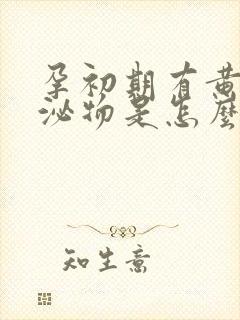 孕初期有黄
泌物是怎麼
知生意